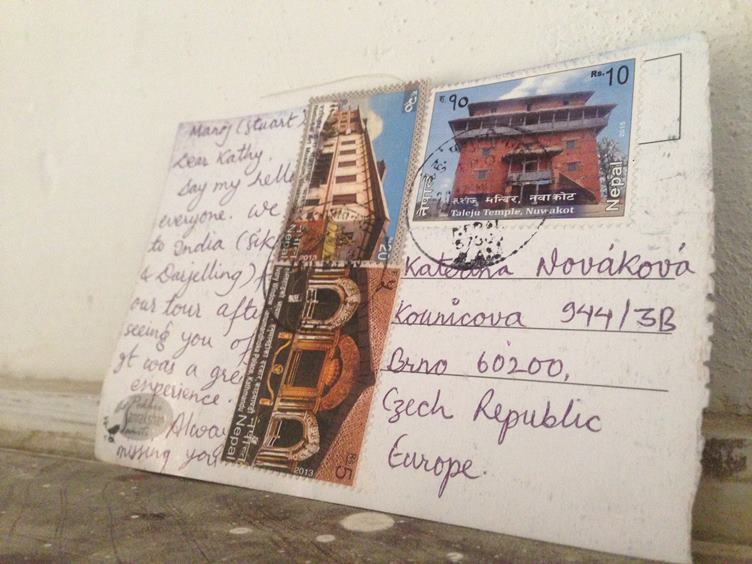 Manoj (Stuart)
Dear Kathy,
Say my hello
everyone. We
to India (Sik
& Darjelling)
our tour afte
seeing you of
It was a gre
experience.
Alway
missing you
रु. १०
Rs. 10
2013
Nepal
नेपाल
मन्दिर, नुवाकोट
Taleju Temple, Nuwakot
20
Nepal
2013
Nepal
Rs. 5
2013
Katerina Nováková
Kounicova 944/3B
Brno 60200,
Czech Republic
Europe.